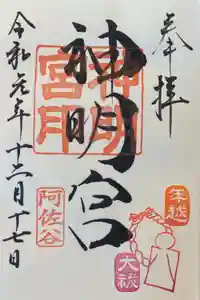 奉拝
神明宮
神明宮印
年越
大祓
阿佐谷
令和元年十二月十七日